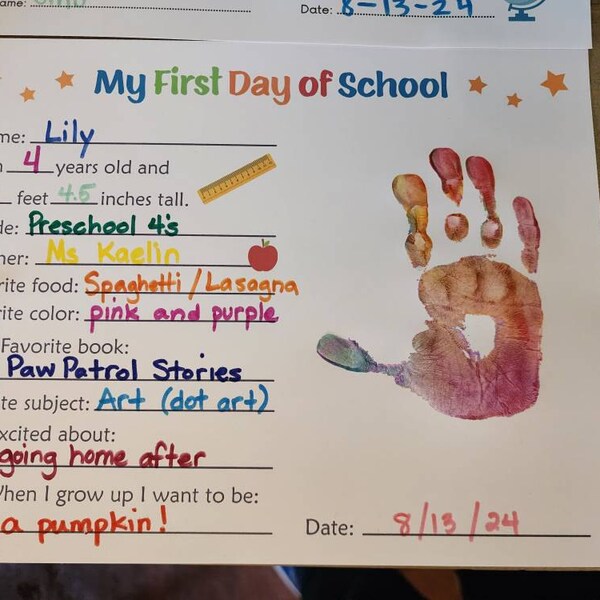 ame:
Date: 8-13-24
My First Day of School
me: Lily
4 years old and
feet 4.5 inches tall.
de: Preschool 4's
her: Ms Kaelin
rite food: Spaghetti / Lasagna
rite color: pink and purple
Favorite book:
Paw Patrol Stories
te subject: Art (dot art)
xcited about:
going home after
When I grow up I want to be:
a pumpkin!
Date: 8/13/24